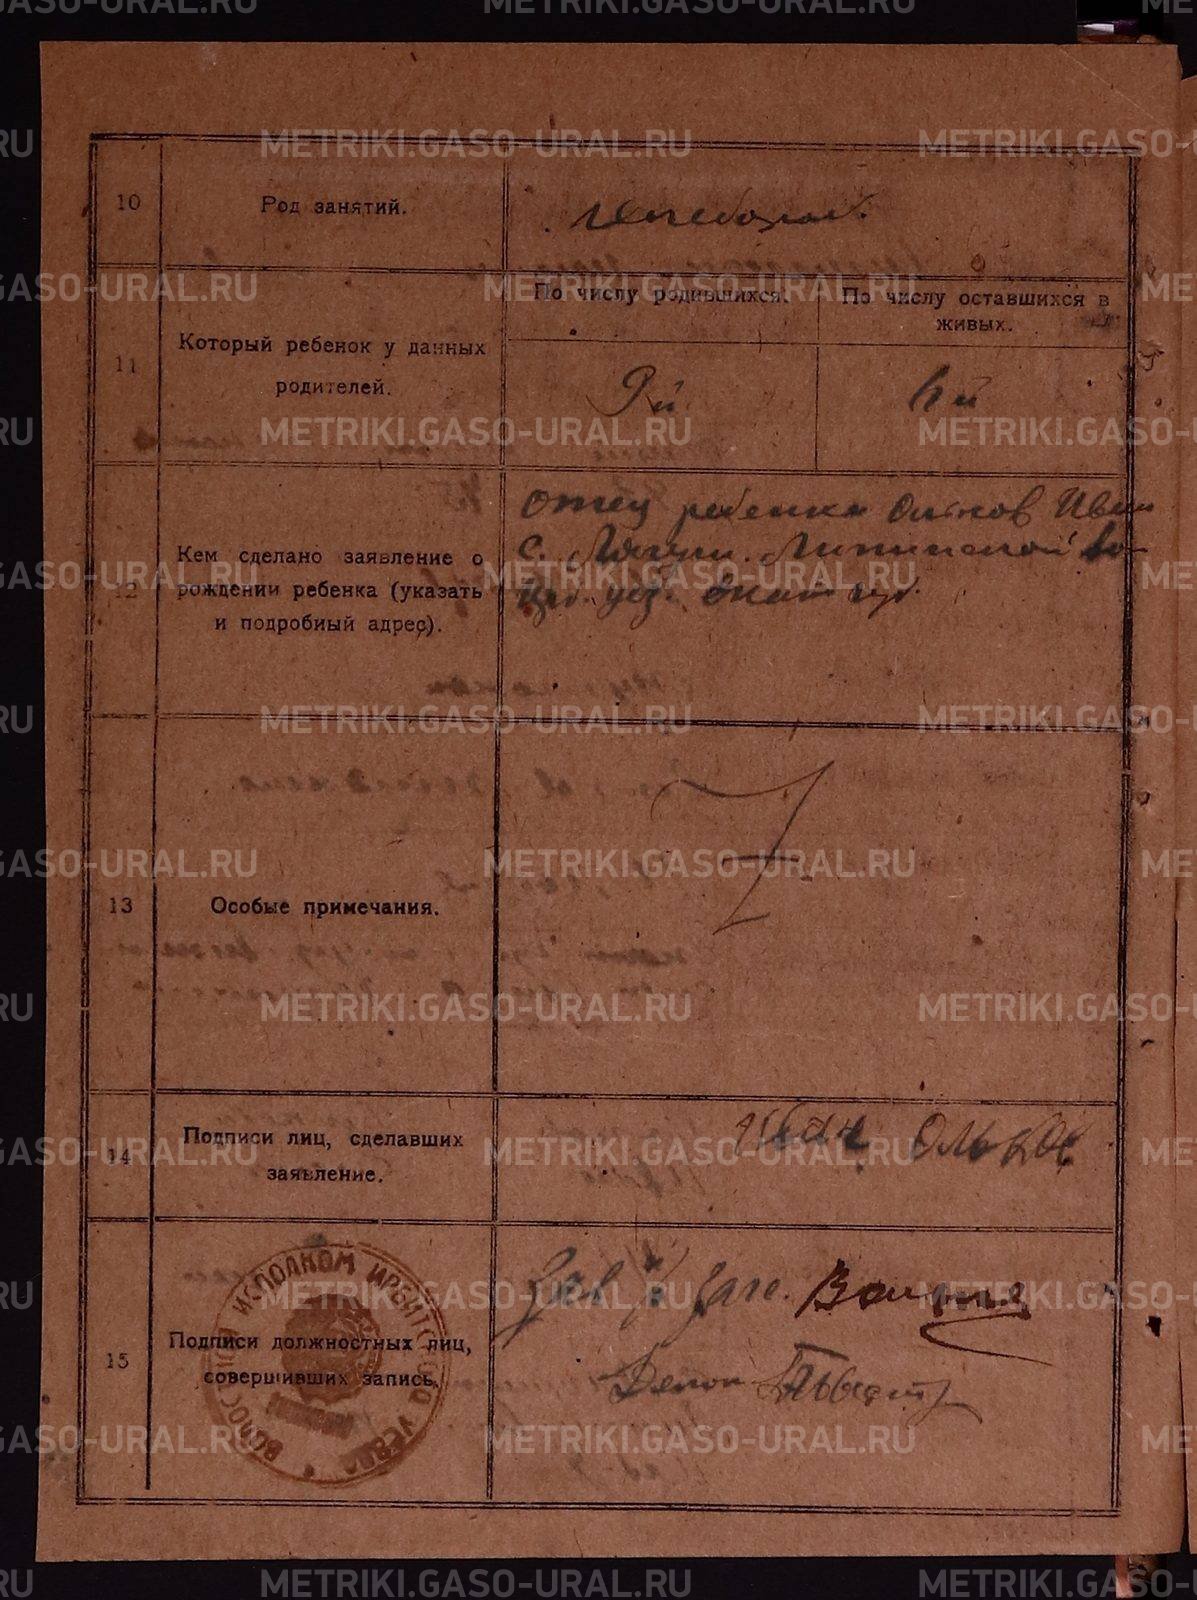 METRIKI.GASO-URAL.RU
10
Род занятий.
Хлебопаш.
11
Который ребенок у данных
родителей.
По числу родившихся.
По числу оставшихся в
живых.
9й
6й
12
Кем сделано заявление о
рождении ребенка (указать
и подробный адрес).
Отец ребенка Ольков Иван
с.
Ирб. уез. Екат губ.
13
Особые примечания.
14
Подписи лиц, сделавших
заявление.
Иван Ольков
15
Подписи должностных лиц,
совершивших запись.
Зав п/ загс.
Делоп
ИСПОЛКОМ ИРБИТСКОГО УЕЗДА